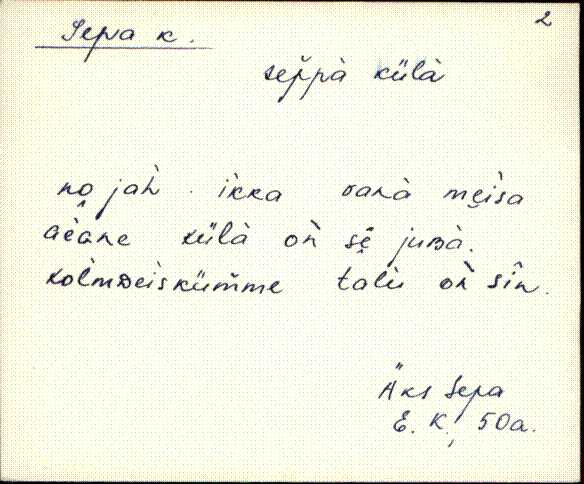 2
Sepa k.
sep̀pà külà
no jah . ikka vanà mẹisa
aèane külà on̆ sē juʙà.
kolmᴅeiskümme talu on̆ sîn.
Äks Sepa
E. K., 50a.